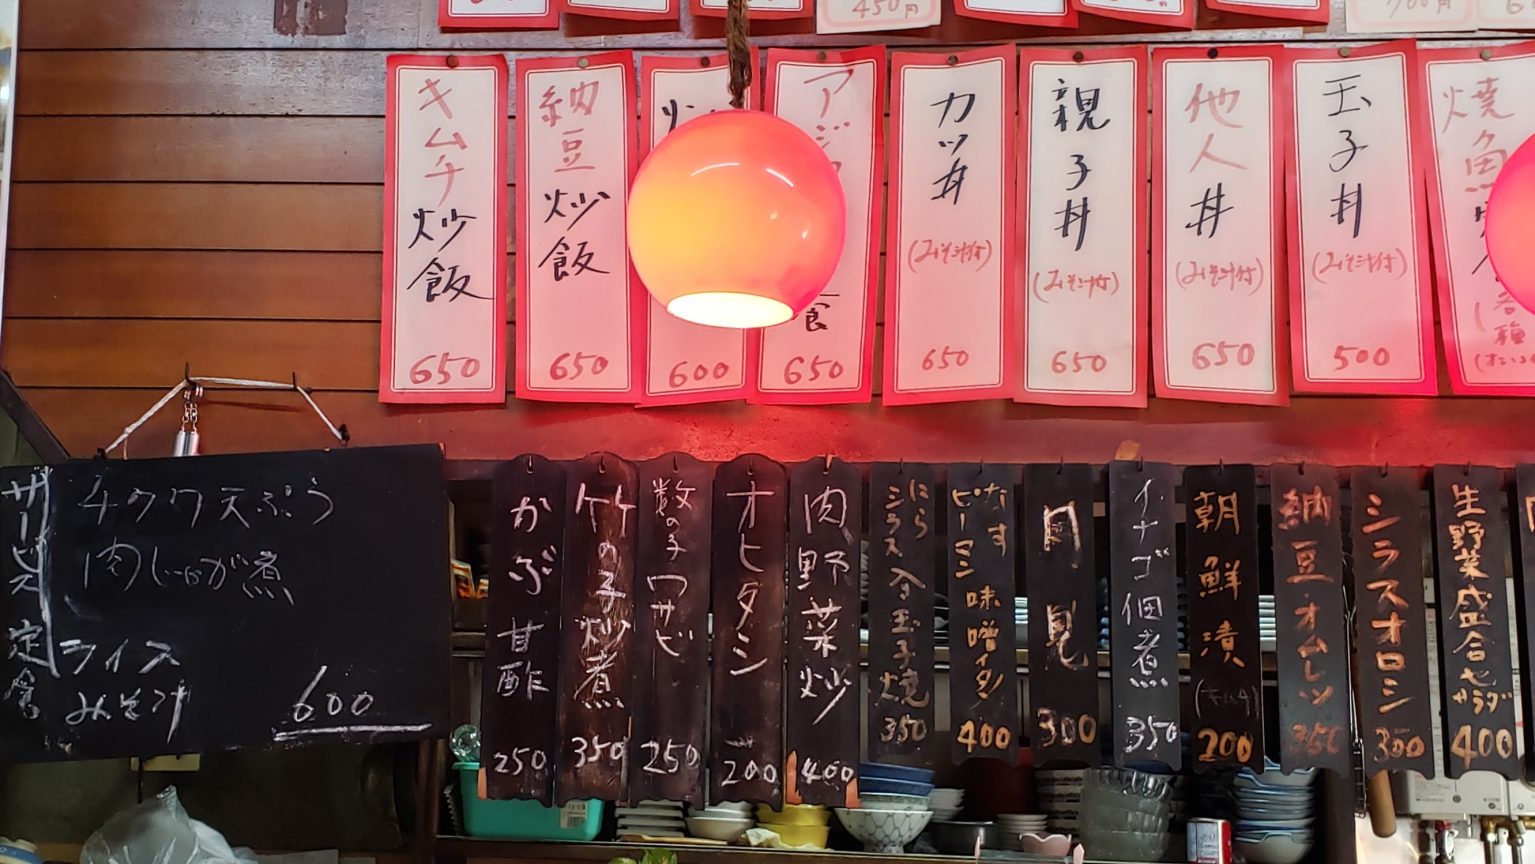 450円
キムチ炒飯
650
納豆炒飯
650
600
650
カツ丼
(みそ汁付)
650
親子丼
(みそ汁付)
650
他人丼
(みそ汁付)
650
玉子丼
(みそ汁付)
500
焼魚
サービス定食
チクワ天ぷら
肉じゃが煮
ライス
みそ汁
600
かぶ甘酢
250
竹の子炒煮
350
数の子ワサビ
250
オヒタシ
200
肉野菜炒
400
にら
シラス入玉子焼
350
なす
ピーマン味噌イタメ
400
月見
300
イナゴ佃煮
350
朝鮮漬
(キムチ)
200
納豆オムレツ
350
シラスオロシ
300
生野菜盛合せ
サラダ
400